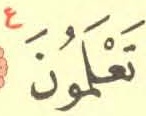 ع
تَعْلَمُونَ